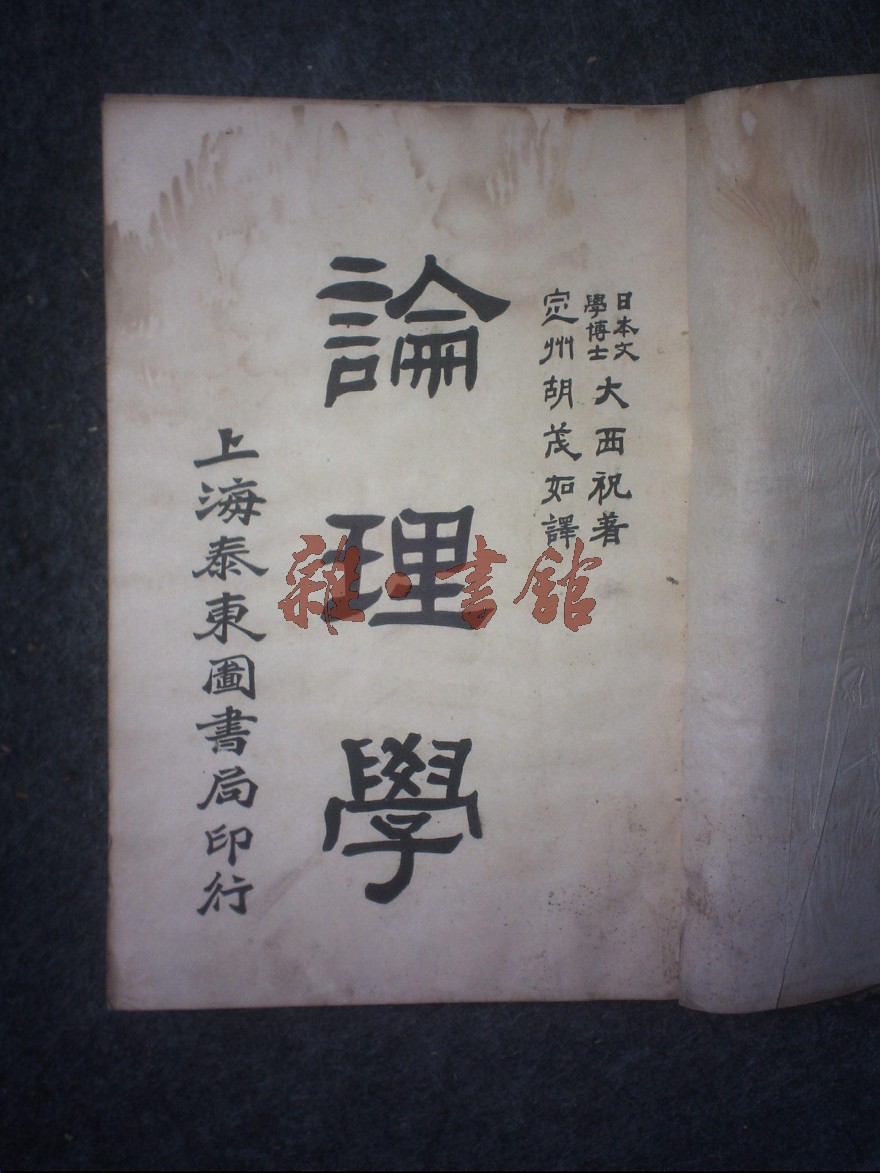 日本文學博士大西祝著
定州胡茂如譯
論理學
上海泰東圖書局印行
雜·書館